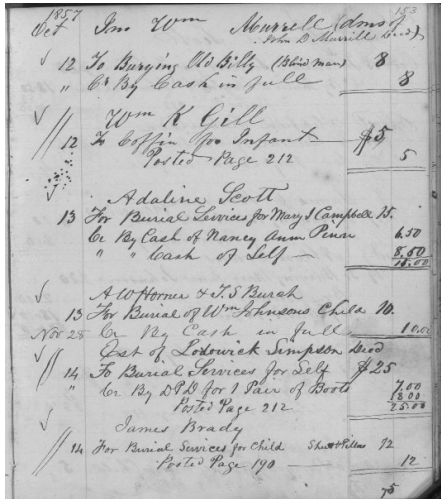 1857 153
Oct Jno Wm Murrell Admr of
John D. Murrill Decd
12 To Burying Old Billy (Blind man) 8
" Cr By Cash in full 8
Wm K Gill
12 To Coffin for Infant $5
Posted Page 212 5
Adaline Scott
13 For Burial Services for Mary J Campbell 15.
Cr By Cash of Nancy Ann 6.50
" " Cash of Self 8.50
15.00
A W Horner & T. S Burch
13 For Burial of Wm Johnsons Child 10.
Nov 28 Cr By Cash in full 10.00
Est of Lodowick Simpson Decd
14 To Burial Services for Self $25
" Cr By D P D for 1 Pair of Boots 7.00
18.00
Posted Page 212 25.00
James Brady
14 For Burial Services for Child 12
Posted Page 190 12
75